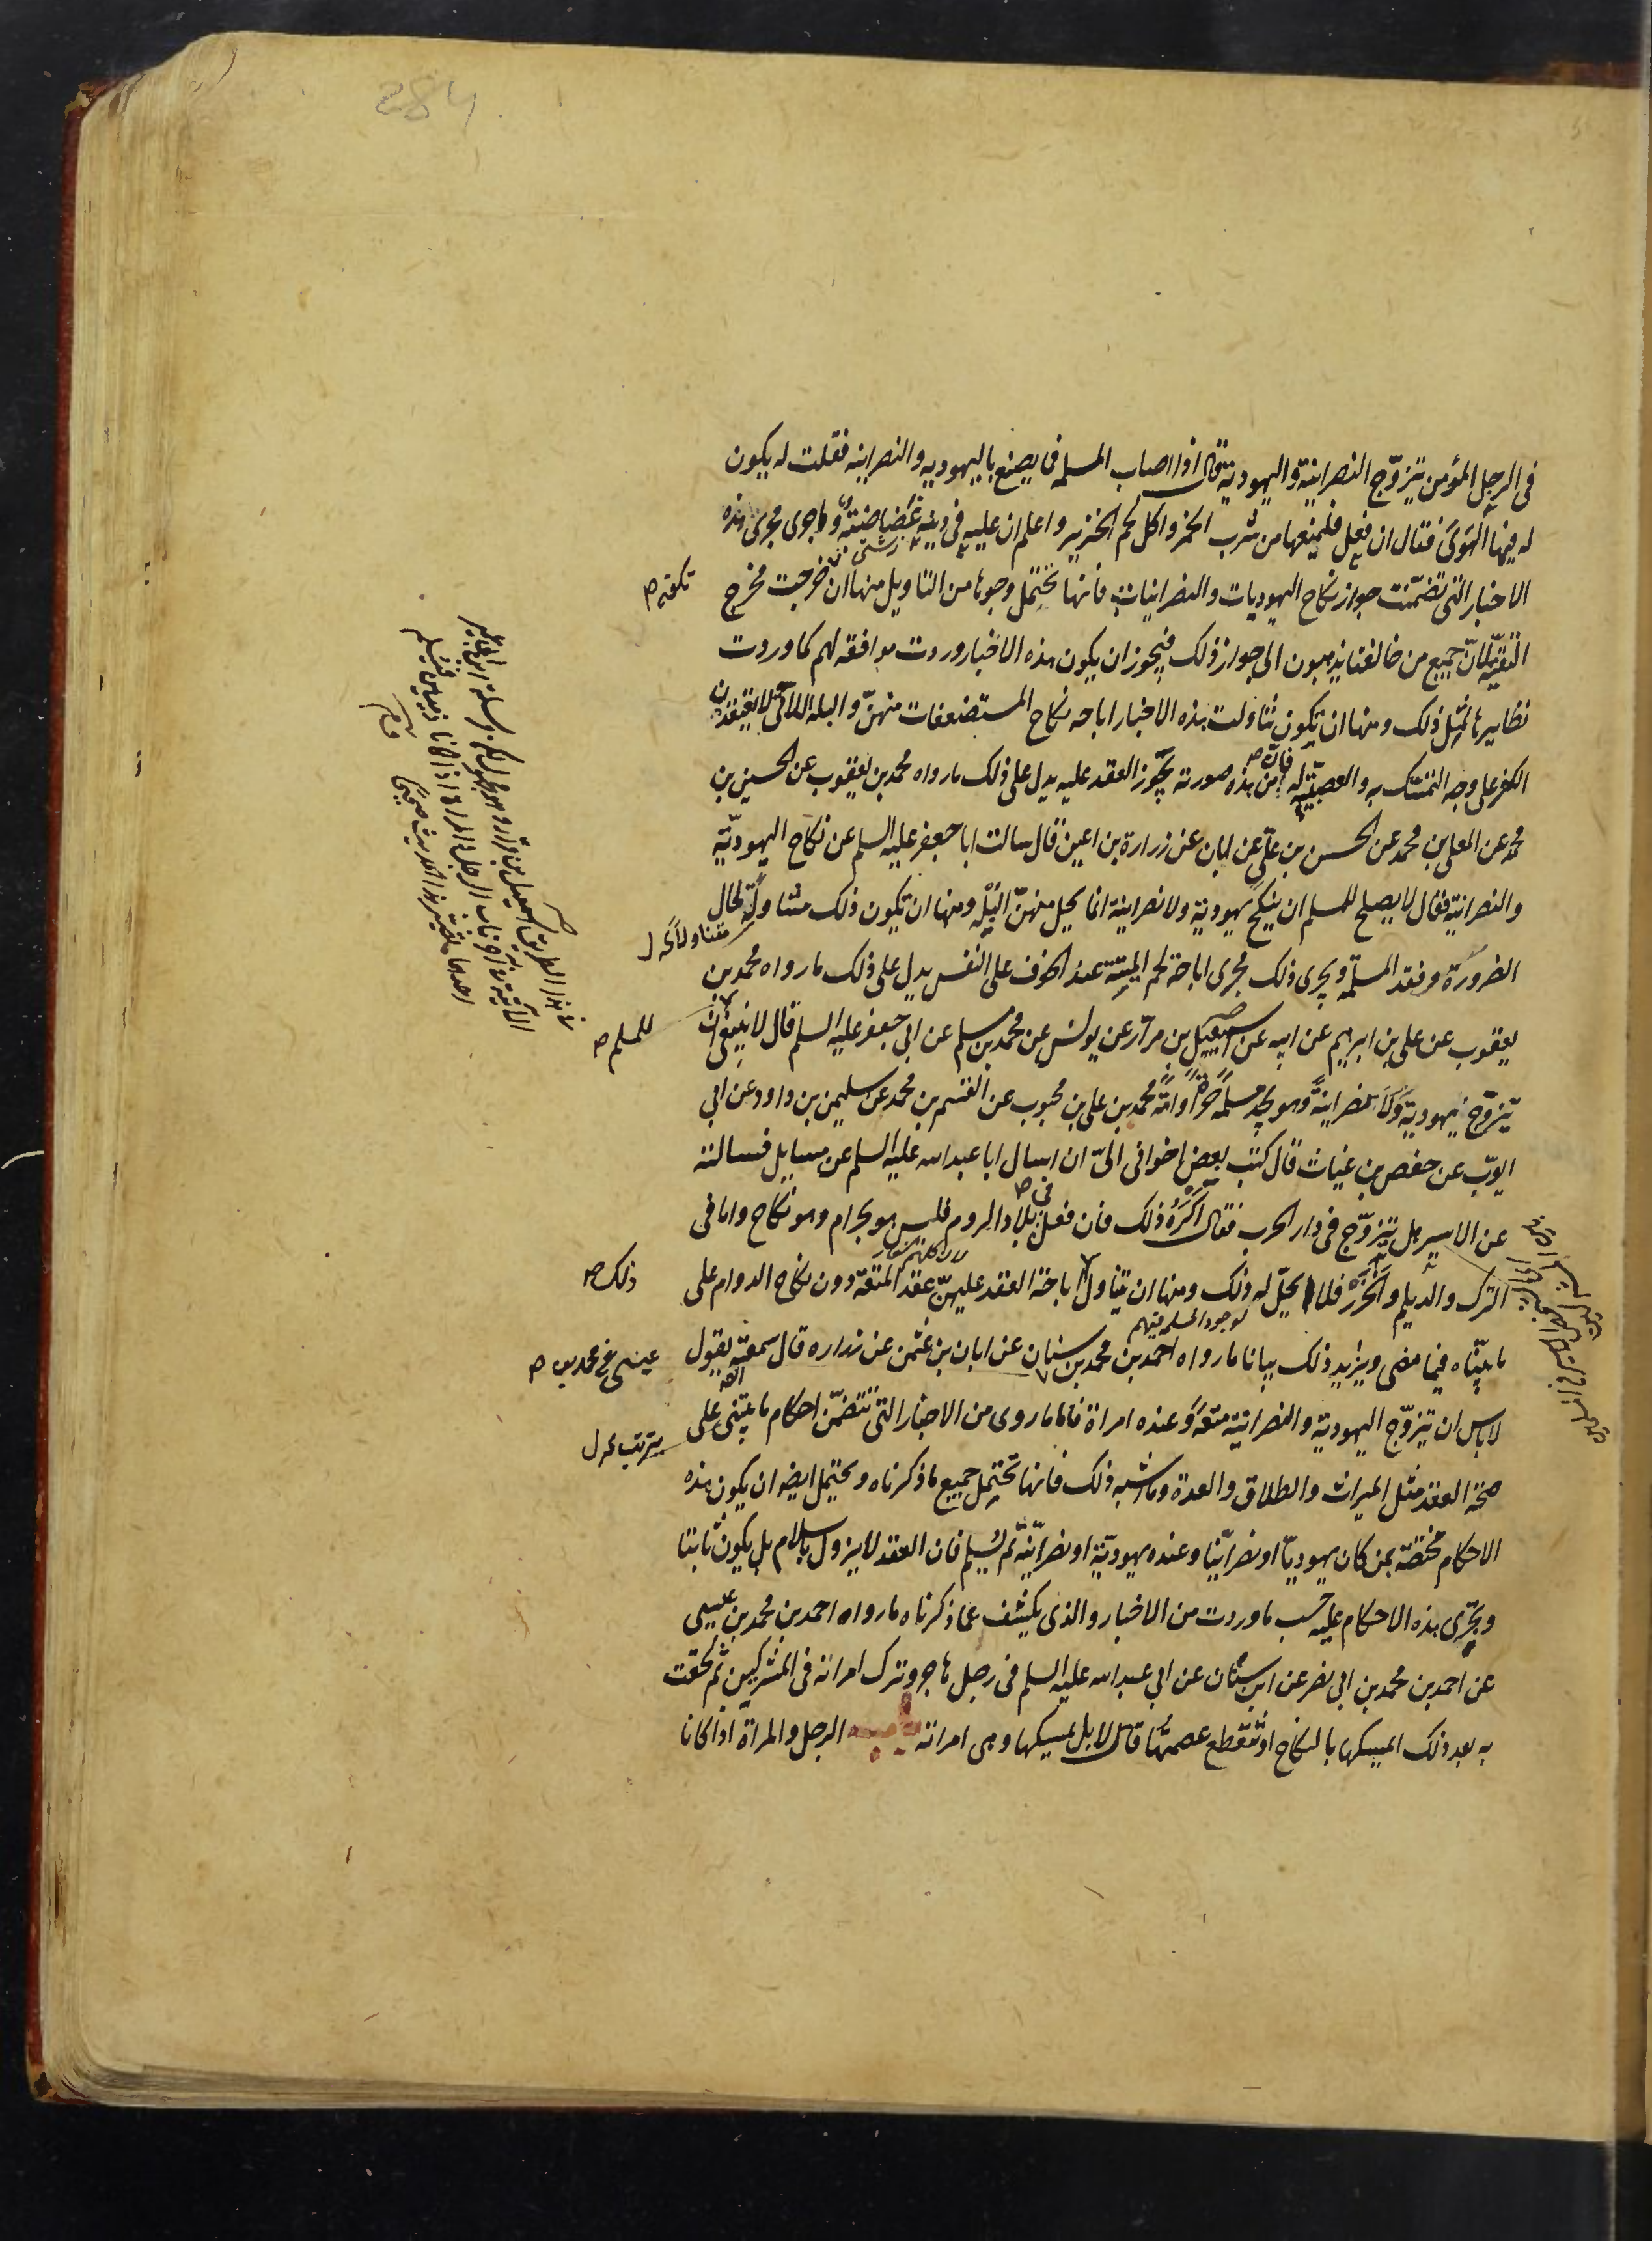 284
فى الرجل المؤمن يتزوّج النصرانية واليهودية قال اذا اصاب المسلمة فما يصنع باليهوديه والنصرانيه فقلت له يكون
له فيها الهوى فقال ان فعل فليمنعها من شرب الخمر واكل لحم الخنزير واعلم ان عليه فى دينه غضاضة وما جرى مجرى هذه
الاخبار التى تضمّنت جواز نكاح اليهوديات والنصرانيات فانها تحتمل وجوها من التاويل منها ان خرجت مخرج
التقيّة لانّ جميع من خالفنا يذهبون الى جواز ذلك فيجوز ان يكون هذه الاخبار وردت موافقه لهم كما وردت
نظايرها لمثل ذلك ومنها ان تكون تناولت هذه الاخبار اباحه نكاح المستضعفات منهنّ والبله اللاتى لا يعتقدن
الكفر على وجه التمسّك به والعصبيّة له فانّ من هذه صورته يجوز العقد عليه يدل على ذلك ما رواه محمد بن يعقوب عن الحسين بن
محمد عن المعلى بن محمد عن الحسن بن علىّ عن ابان عن زرارة بن اعين قال سالت ابا جعفر عليه السلم عن نكاح اليهوديّة
والنصرانية فقال لا يصلح للمسلم ان ينكح يهودية ولا نصرانية انما يحل منهنّ البله ومنها ان تكون ذلك متناولة لحال
الضرورة وفقد المسلمة ويجرى ذلك مجرى اباحة لحم الميتة عند الخوف على النفس يدل على ذلك ما رواه محمد بن
يعقوب عن على بن ابرهيم عن ابيه عن اسمعيل بن مرار عن يونس عن محمد بن مسلم عن ابى جعفر عليه السلم قال لا ينبغى ان
يتزوّج يهودية ولا نصرانية وهو يجد مسلمة حرة او امة محمد بن على بن محبوب عن القسم بن محمد عن سليمن بن داود عن ابى
ايوب عن حفص بن غياث قال كتب بعض اخوانى الىّ ان اسال ابا عبد الله عليه السلم عن مسايل فسالته
عن الاسير هل يتزوّج فى دار الحرب فقال اكره ذلك فان فعل فى بلاد الروم فليس هو بحرام وهو نكاح واما فى
الترك والديلم والخزر فلا يحلّ له ذلك ومنها ان يتناول اباحة العقد عليهنّ عقد المتعة دون نكاح الدوام على
ما بيّناه فيما مضى ويزيد ذلك بيانا ما رواه احمد بن محمد بن سنان عن ابان بن عثمن عن زراره قال سمعته يقول
لا باس ان يتزوّج اليهودية والنصرانية متعة وعنده امراة فاما ما روى من الاخبار التى تتضمّن احكام ما يبتنى على
صحة العقد مثل الميراث والطلاق والعدة وما اشبه ذلك فانها تحتمل جميع ما ذكرناه ويحتمل ايضا ان يكون هذه
الاحكام مختصّة بمن كان يهوديّا او نصرانيّا وعنده يهوديّة او نصرانيّة ثم يسلم فان العقد لا يزول باسلام بل يكون ثابتا
ويجرى هذه الاحكام عليه حسب ما وردت من الاخبار والذى يكشف عما ذكرناه ما رواه احمد بن محمد بن عيسى
عن احمد بن محمد بن ابى نصر عن ابن سنان عن ابى عبد الله عليه السلم فى رجل هاجر وترك امراته فى المشركين ثم لحقت
به بعد ذلك ايمسكها بالنكاح او تنقطع عصمتها قال لا بل يمسكها وهى امراته الرجل والمراة اذا كانا
متناولا لحال ل
للمسلم ص
لوجود المسلمة فيهم
ذلك ص
عيسى عن محمد بن ص
يترتب ل